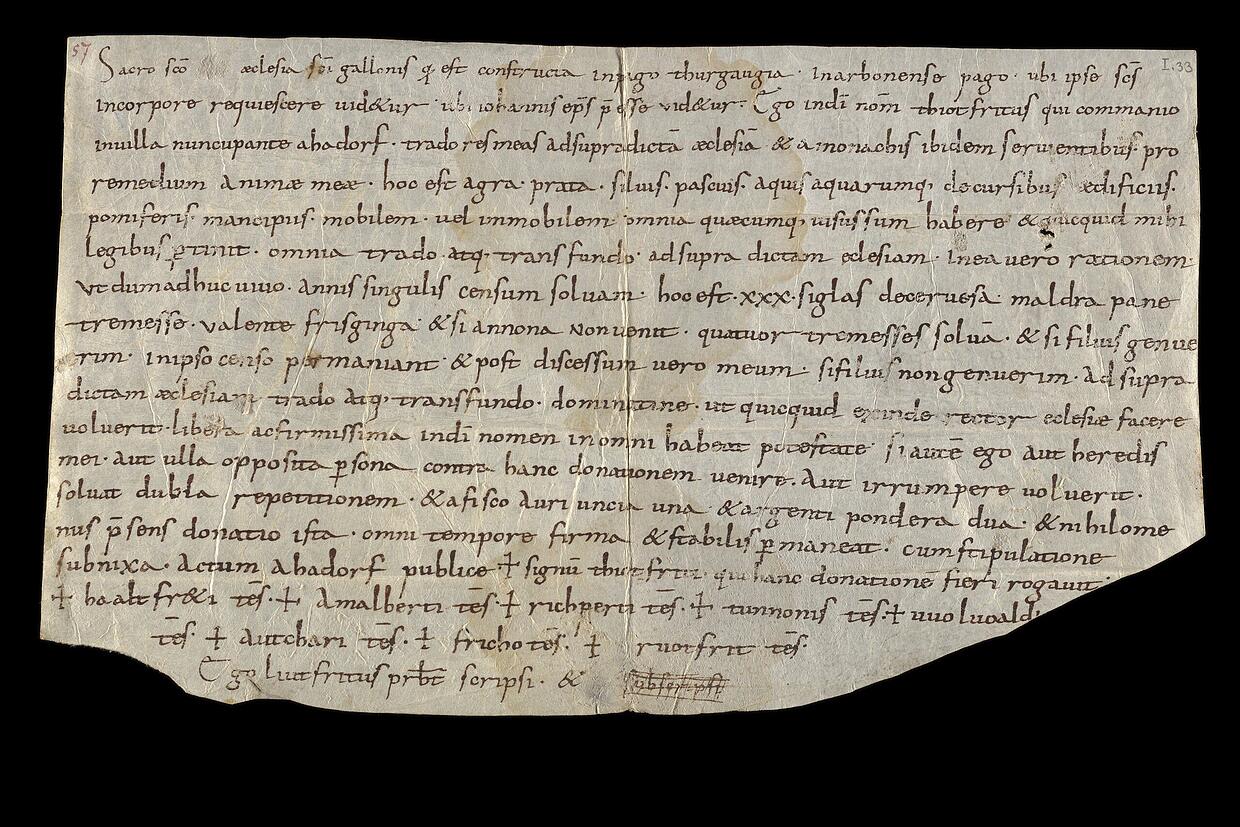 57
I.33
Sacro sc̄o æclesia sc̄i gallonis q̨ est constructa inpago thurgaugia · Inarbonense pago · ubi ipse sc̄s
incorpore requiescere uid&ur · ubi iohannis ep̄s p̄esse uid&ur · Ego indī nom̄ thiotfritus qui commanio
inuilla nuncupante ahadorf · trado res meas adsupradictā æclesiā & a monachis ibidem seruientibus · pro
remedium animæ meæ · hoc est agra · prata · siluis · pascuis · aquis aquarumq; decursibus ædificiis ·
pomiferis · mancipiis · mobilem · uel inmobilem · omnia quæcumq; uisus sum habere & quicquid mihi
legibus ꝑtinit · omnia trado · atq; transfundo · ad supra dictam eclesiam · Inea uero rætionem ·
Vt dum adhuc uiuo · annis singulis censum soluam · hoc est · xxx · siglas deceruesa · maldra pane
tremisse · ualente frisginga · & si annona non uenit · quatuor tremesses soluā · & si filius genue
rim · inipso censo permaniant · & post discessum uero meum · si filius non genuerim · ad supra
dictam æclesiam trado atq; transfundo · dominatine · ut quicquid exinde rector eclesiæ facere
uoluerit · libera ac firmissima indī nomen in omni habeat potestate · si autē ego aut heredis
mei · aut ulla opposita ꝑsona contra hanc donationem uenire · aut irrumpere uoluerit ·
soluat dubla repetitionem · & a fisco auri uncia una · & argenti pondera dua · & nihilome
nus p̄sens donatio ista · omni tempore firma & stabilis ꝑmaneat · cum stipulatione
subnixa · Actum ahadorf publice ·☩ signū thiotfriti qui hanc donationē fieri rogauit ·
☩ haaltfr&i tēs · ☩ Amalberti tēs · ☩ richperti tēs · ☩ tunnonis tēs · ☩ uuoluoaldi
tēs · ☩ autchari tēs · ☩ fricho tēs · ☩ ruotfrit tēs ·
Ego liutfritus prb̄t scripsi · & subscripsi